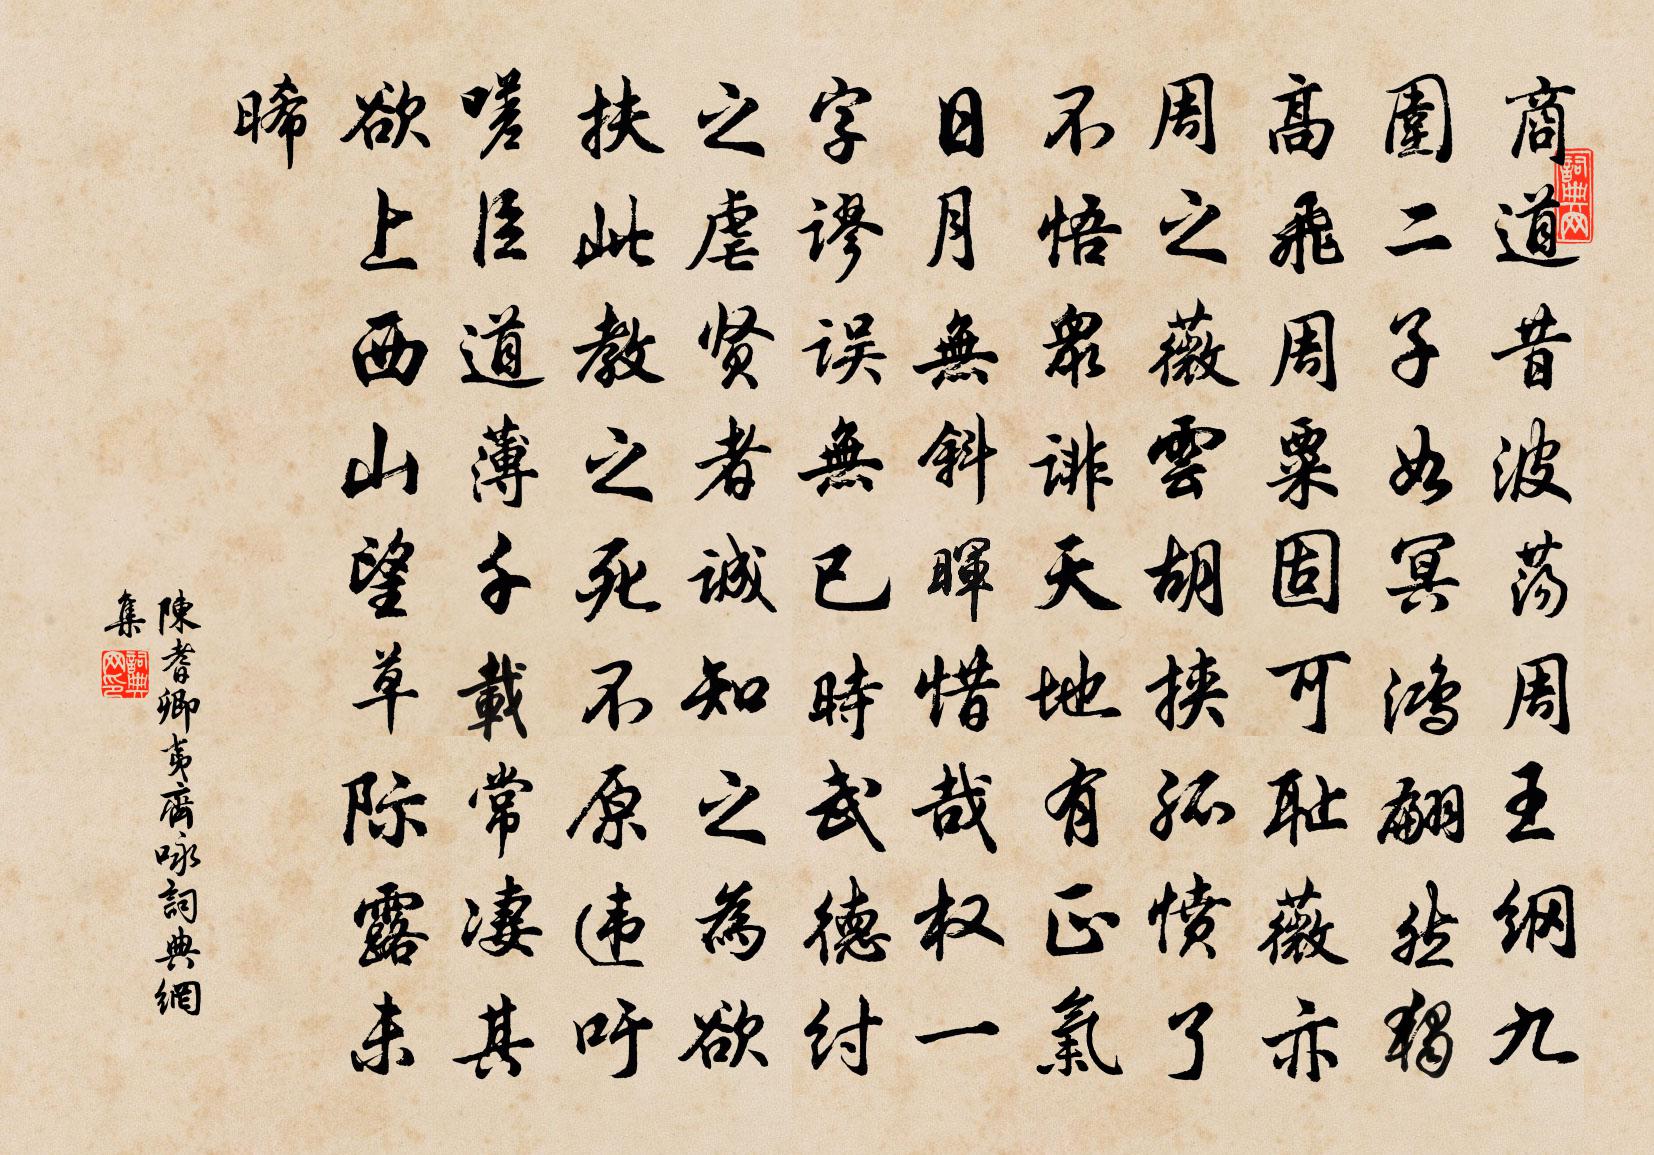 商道昔波荡周王纲九
圍二子如冥鴻翩然獨
高飛周粟固可耻薇亦
周之薇雲胡挾孤憤了
不悟眾誹天地有正氣
日月無斜暉惜哉权一
字謬误無已時武德紂
之虐贤者誠知之為欲
扶此教之死不原违吁
嗟臣道薄千載常凄其
欲上西山望草际露未
晞
陳耆卿夷齊咏詞典網
集
詞典网
詞典网印